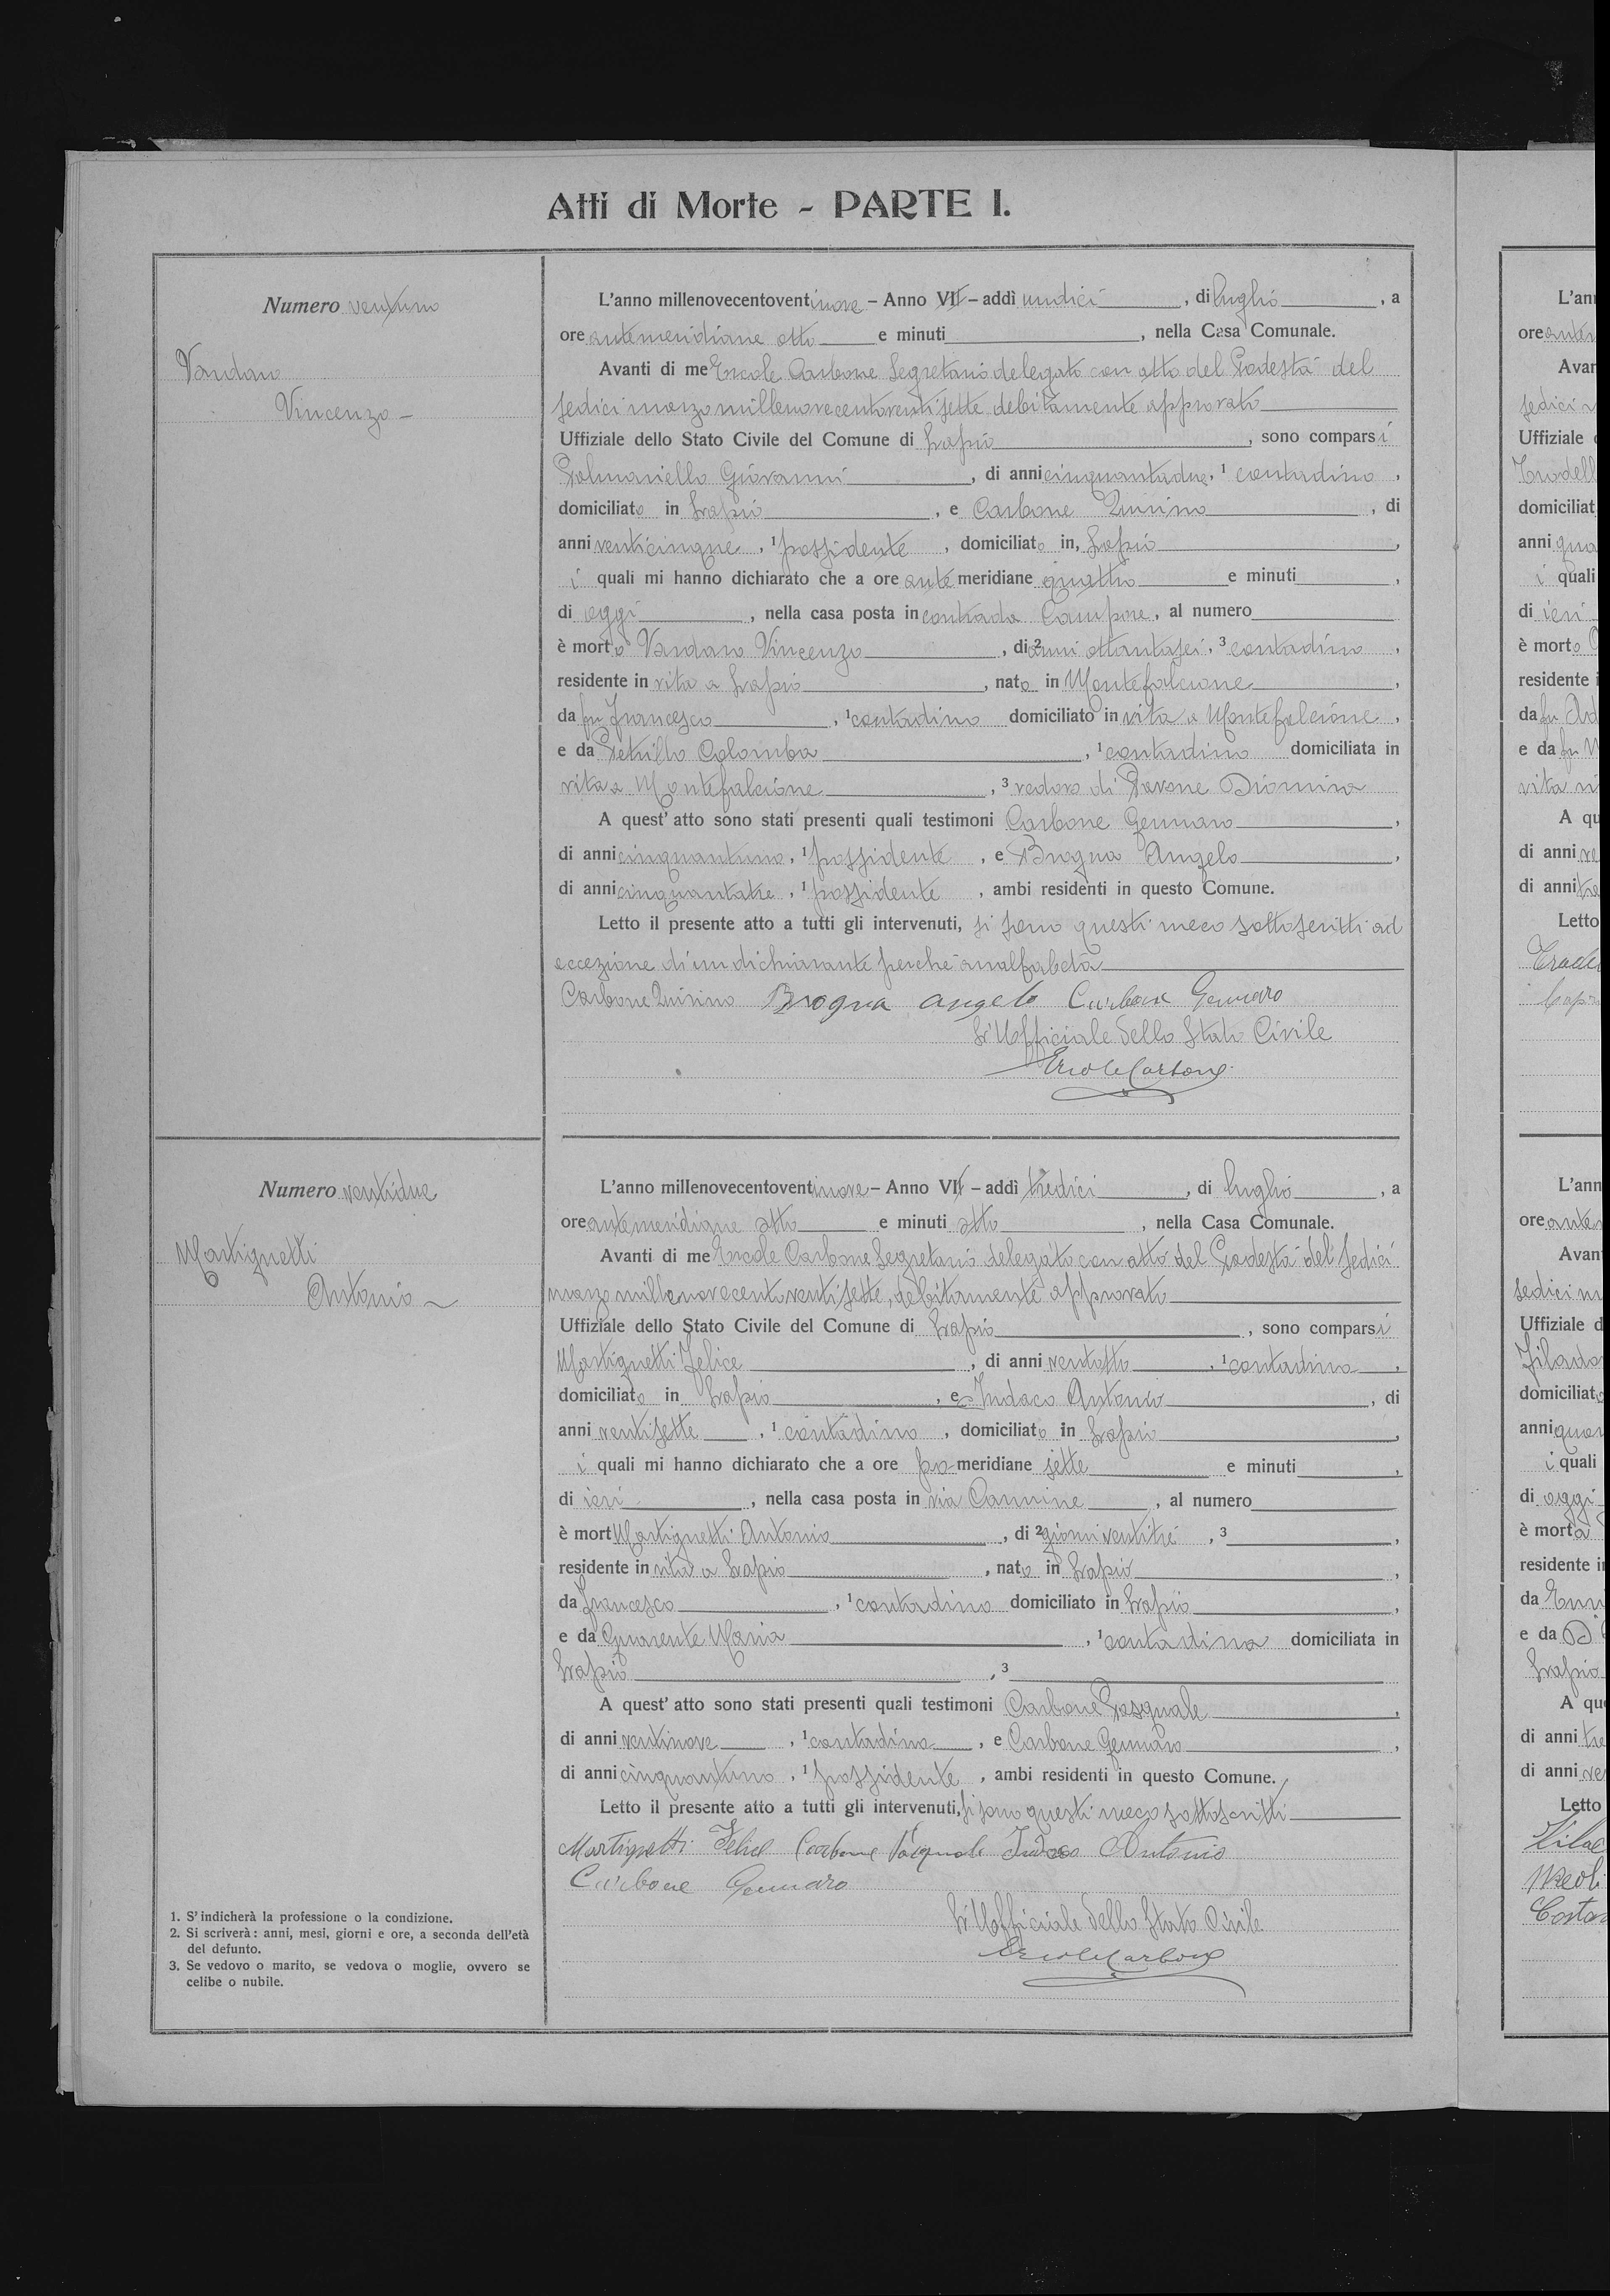 Atti di Morte - PARTE I.
Numero ventuno
Vardaro
Vincenzo -
L'anno millenovecentoventinove - Anno VII - addì undici, di luglio, a
ore antemeridiane otto e minuti, nella Casa Comunale.
Avanti di me Ercole Carbone Segretario delegato con atto del Podestà del
sedici marzo millenovecentoventisette, debitamente approvato
Uffiziale dello Stato Civile del Comune di Lapio, sono comparsi
Polmoniello Giovanni, di anni cinquantadue, 1 contadino,
domiciliato in Lapio, e Carbone Quirino, di
anni venticinque, 1 possidente, domiciliato in, Lapio,
i quali mi hanno dichiarato che a ore antemeridiane quattro e minuti,
di oggi, nella casa posta in contrada Campore, al numero
è morto Vardaro Vincenzo, di 2 anni ottantasei, 3 contadino,
residente in vita a Lapio, nato in Montefalcione,
da fu Francesco, 1 contadino domiciliato in vita a Montefalcione,
e da Petrillo Colomba, 1 contadino domiciliata in
vita a Montefalcione, 3 vedovo di Pavone Diomira
A quest' atto sono stati presenti quali testimoni Carbone Gennaro,
di anni cinquantuno, 1 possidente, e Brogna Angelo,
di anni cinquantatre, 1 possidente, ambi residenti in questo Comune.
Letto il presente atto a tutti gli intervenuti, si sono questi meco sottoscritti ad
eccezione di un dichiarante perchè analfabeta
Carbone Quirino Brogna Angelo Carbone Gennaro
L'Ufficiale dello Stato Civile
Ercole Carbone
Numero ventidue
Martignetti
Antonio -
L'anno millenovecentoventinove - Anno VII - addì tredici, di luglio, a
ore antemeridiane otto e minuti otto, nella Casa Comunale.
Avanti di me Ercole Carbone Segretario delegato con atto del Podestà del sedici
marzo millenovecentoventisette, debitamente approvato
Uffiziale dello Stato Civile del Comune di Lapio, sono comparsi
Martignetti Felice, di anni ventotto, 1 contadino,
domiciliato in Lapio, e Indaco Antonio, di
anni ventisette, 1 contadino, domiciliato in Lapio,
i quali mi hanno dichiarato che a ore pomeridiane sette e minuti,
di ieri, nella casa posta in via Carmine, al numero
è mort Martignetti Antonio, di 2 giorni ventitrè, 3,
residente in vita a Lapio, nato in Lapio,
da Francesco, 1 contadino domiciliato in Lapio,
e da Maria, 1 contadina domiciliata in
Lapio, 3
A quest' atto sono stati presenti quali testimoni Carbone Pasquale,
di anni ventinove, 1 contadino, e Carbone Gennaro,
di anni cinquantuno, 1 possidente, ambi residenti in questo Comune.
Letto il presente atto a tutti gli intervenuti, si sono questi meco sottoscritti
Martignetti Felice Carbone Pasquale Indaco Antonio
Carbone Gennaro
L'Ufficiale dello Stato Civile
Ercole Carbone
1. S'indicherà la professione o la condizione.
2. Si scriverà: anni, mesi, giorni e ore, a seconda dell'età
del defunto.
3. Se vedovo o marito, se vedova o moglie, ovvero se
celibe o nubile.